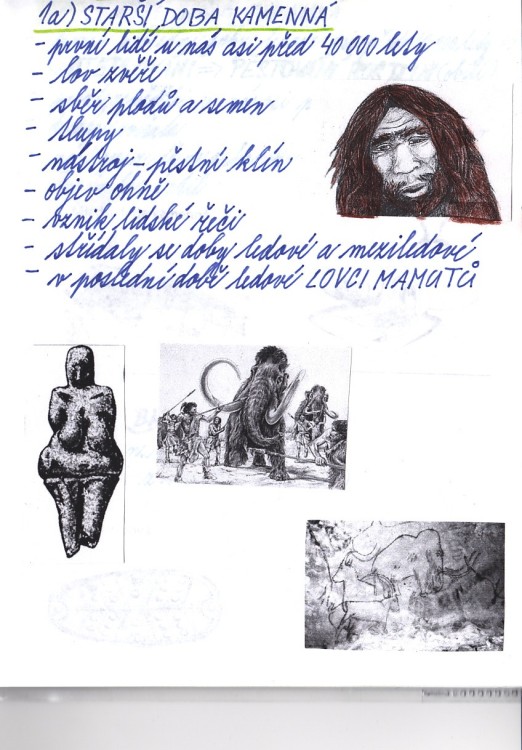 1a) STARŠÍ DOBA KAMENNÁ
- první lidé u nás asi před 40 000 lety
- lov zvěře
- sběr plodů a semen
- tlupy
- nástroj - pěstní klín
- objev ohně
- vznik lidské řeči
- střídaly se doby ledové a meziledové
- v poslední době ledové LOVCI MAMUTŮ